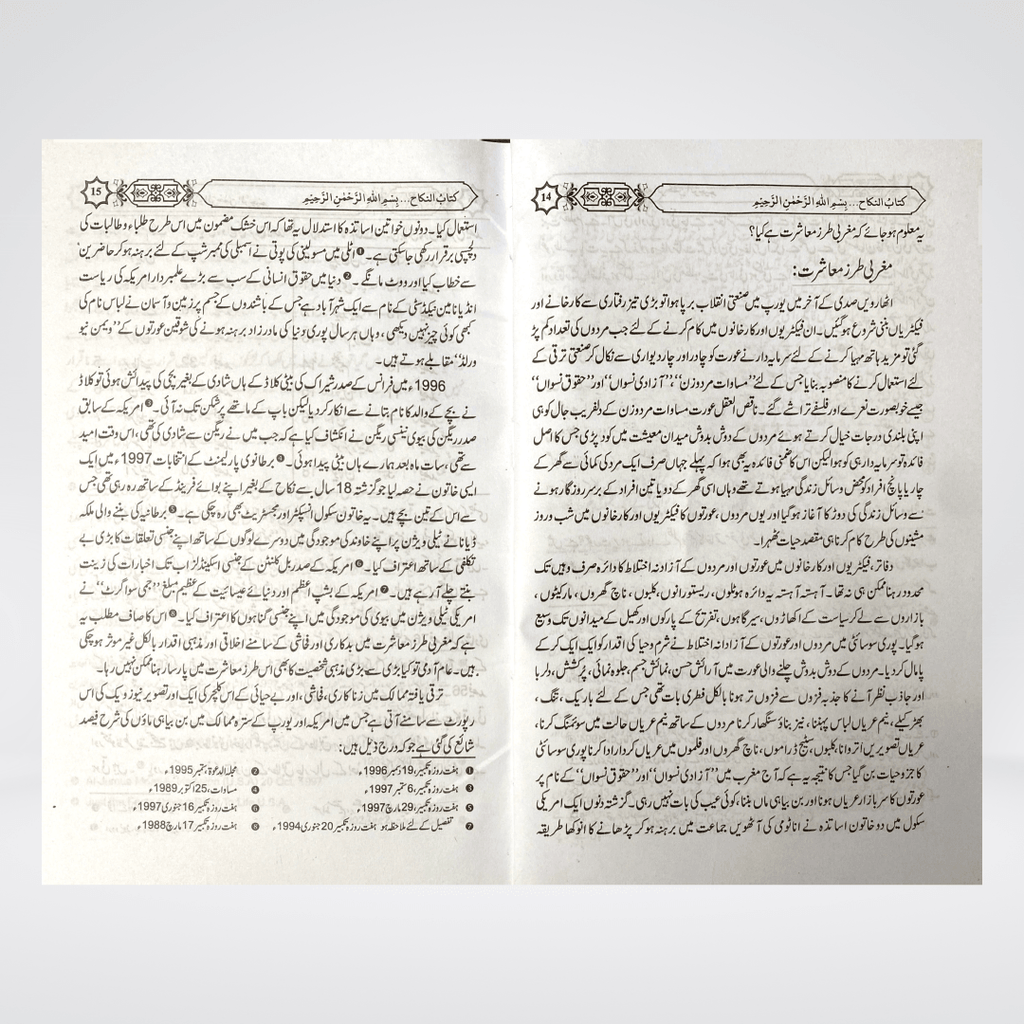 14
کتاب النکاح ... بِسْمِ اللهِ الرَّحْمٰنِ الرَّحِيْمِ
یہ معلوم ہو جائے کہ مغربی طرز معاشرت ہے کیا؟
مغربی طرز معاشرت:
اٹھارویں صدی کے آخر میں یورپ میں صنعتی انقلاب برپا ہوا تو بڑی تیز رفتاری سے کارخانے اور
فیکٹریاں بننی شروع ہوگئیں۔ ان فیکٹریوں اور کارخانوں میں کام کرنے کے لئے جب مردوں کی تعداد کم پڑ
گئی تو مزید ہاتھ مہیا کرنے کے لئے سرمایہ دار نے عورت کو چادر اور چار دیواری سے نکال کر صنعتی ترقی کے
لئے استعمال کرنے کا منصوبہ بنایا جس کے لئے ”مساوات مرد و زن“، ”آزادی نسواں“ اور ”حقوق نسواں“
جیسے خوبصورت نعرے اور فلسفے تراشے گئے۔ ناقص العقل عورت مساوات مرد و زن کے دلفریب جال کو ہی
اپنی بلندی درجات خیال کرتے ہوئے مردوں کے دوش بدوش میدان معیشت میں کود پڑی جس کا اصل
فائدہ تو سرمایہ دار ہی کو ہوا لیکن اس کا ضمنی فائدہ یہ بھی ہوا کہ پہلے جہاں صرف ایک مرد کی کمائی سے گھر کے
چار یا پانچ افراد کو محض وسائل زندگی مہیا ہوتے تھے وہاں اسی گھر کے دو یا تین افراد کے برسر روزگار ہونے
سے وسائل زندگی کی دوڑ کا آغاز ہوگیا اور یوں مردوں، عورتوں کا فیکٹریوں اور کارخانوں میں شب و روز
مشینوں کی طرح کام کرنا ہی مقصد حیات ٹھہرا۔
دفاتر، فیکٹریوں اور کارخانوں میں عورتوں اور مردوں کے آزادانہ اختلاط کا دائرہ صرف وہیں تک
محدود رہنا ممکن ہی نہ تھا۔ آہستہ آہستہ یہ دائرہ ہوٹلوں، ریستورانوں، کلبوں، ناچ گھروں، مارکیٹوں،
بازاروں سے لے کر سیاست کے اکھاڑوں، سیرگاہوں، تفریح کے پارکوں اور کھیل کے میدانوں تک وسیع
ہوگیا۔ پوری سوسائٹی میں مردوں اور عورتوں کے آزادانہ اختلاط نے شرم و حیا کی اقدار کو ایک ایک کر کے
پامال کر دیا۔ مردوں کے دوش بدوش چلنے والی عورت میں آرائش حسن، نمائش جسم، جلوہ نمائی، پرکشش، دلربا
اور جاذب نظر آنے کا جذبہ فزوں سے فزوں تر ہونا بالکل فطری بات تھی جس کے لئے باریک، تنگ،
بھڑکیلے، نیم عریاں لباس پہننا، نیز بناؤ سنگھار کرنا مردوں کے ساتھ نیم عریاں حالت میں سوئمنگ کرنا،
عریاں تصویریں اتروانا، کلبوں، سٹیج ڈراموں، ناچ گھروں اور فلموں میں عریاں کردار ادا کرنا پوری سوسائٹی
کا جزو حیات بن گیا جس کا نتیجہ یہ ہے کہ آج مغرب میں ”آزادی نسواں“ اور ”حقوق نسواں“ کے نام پر
عورتوں کا سربازار عریاں ہونا اور بن بیاہی ماں بننا، کوئی عیب کی بات نہیں رہی۔ گزشتہ دنوں ایک امریکی
سکول میں دو خاتون اساتذہ نے اناٹومی کی آٹھویں جماعت میں برہنہ ہو کر پڑھانے کا انوکھا طریقہ
15
کتاب النکاح ... بِسْمِ اللهِ الرَّحْمٰنِ الرَّحِيْمِ
استعمال کیا۔ دونوں خواتین اساتذہ کا استدلال یہ تھا کہ اس خشک مضمون میں اس طرح طلباء و طالبات کی
دلچسپی برقرار رکھی جاسکتی ہے۔ ❶ اٹلی میں مسولینی کی پوتی نے اسمبلی کی ممبرشپ کے لئے برہنہ ہو کر حاضرین
سے خطاب کیا اور ووٹ مانگے۔ ❷ دنیا میں حقوق انسانی کے سب سے بڑے علمبردار امریکہ کی ریاست
انڈیانا مین نیکڈسٹی کے نام سے ایک شہر آباد ہے جس کے باشندوں کے جسم پر زمین و آسمان نے لباس نام کی
کبھی کوئی چیز نہیں دیکھی، وہاں ہر سال پوری دنیا کی مادر زاد برہنہ ہونے کی شوقین عورتوں کے ”ویمن نیو
ورلڈ“ مقابلے ہوتے ہیں۔
1996ء میں فرانس کے صدر شیراک کی بیٹی کلاڈ کے ہاں شادی کے بغیر بچی کی پیدائش ہوئی تو کلاڈ
نے بچے کے والد کا نام بتانے سے انکار کر دیا لیکن باپ کے ماتھے پر شکن تک نہ آئی۔ ❸ امریکہ کے سابق
صدر ریگن کی بیوی نینسی ریگن نے انکشاف کیا ہے کہ جب میں نے ریگن سے شادی کی تھی، اس وقت امید
سے تھی، سات ماہ بعد ہمارے ہاں بیٹی پیدا ہوئی۔ ❹ برطانوی پارلیمنٹ کے انتخابات 1997ء میں ایک
ایسی خاتون نے حصہ لیا جو گزشتہ 18 سال سے نکاح کے بغیر اپنے بوائے فرینڈ کے ساتھ رہ رہی تھی جس
سے اس کے تین بچے ہیں۔ یہ خاتون سکول انسپکٹر اور مجسٹریٹ بھی رہ چکی ہے۔ ❺ برطانیہ کی بننے والی ملکہ
ڈیانا نے ٹیلی ویژن پر اپنے خاوند کی موجودگی میں دوسرے لوگوں کے ساتھ اپنے جنسی تعلقات کا بڑی بے
تکلفی کے ساتھ اعتراف کیا۔ ❻ امریکہ کے صدر بل کلنٹن کے جنسی اسکینڈلز اب تک اخبارات کی زینت
بنتے چلے آرہے ہیں۔ ❼ امریکہ کے بشپ اعظم اور دنیائے عیسائیت کے عظیم مبلغ ”جمی سواگرٹ“ نے
امریکی ٹیلی ویژن میں بیوی کی موجودگی میں اپنے جنسی گناہوں کا اعتراف کیا۔ ❽ اس کا صاف مطلب یہ
ہے کہ مغربی طرز معاشرت میں بدکاری اور فاشی کے سامنے اخلاقی اور مذہبی اقدار بالکل غیر موثر ہو چکی
ہیں۔ عام آدمی تو کیا بڑی سے بڑی مذہبی شخصیت کا بھی اس طرز معاشرت میں پارسا رہنا ممکن نہیں رہا۔
ترقی یافتہ ممالک میں زناکاری، فاشی، اور بے حیائی کے اس کلچر کی ایک اور تصویر نیوز ویک کی اس
رپورٹ سے سامنے آتی ہے جس میں امریکہ اور یورپ کے سترہ ممالک میں بن بیاہی ماؤں کی شرح فیصد
شائع کی گئی ہے جو کہ درج ذیل ہیں:
❶ ہفت روزہ تکبیر، 19 دسمبر 1996ء ❷ مجلہ الدعوۃ، ستمبر 1995ء
❸ ہفت روزہ تکبیر، 6 ستمبر 1997ء ❹ مساوات، 25 اکتوبر 1989ء
❺ ہفت روزہ تکبیر، 29 مارچ 1997ء ❻ ہفت روزہ تکبیر 16 جنوری 1997ء
❼ تفصیل کے لئے ملاحظہ ہو ہفت روزہ تکبیر 20 جنوری 1994ء ❽ ہفت روزہ تکبیر 17 مارچ 1988ء